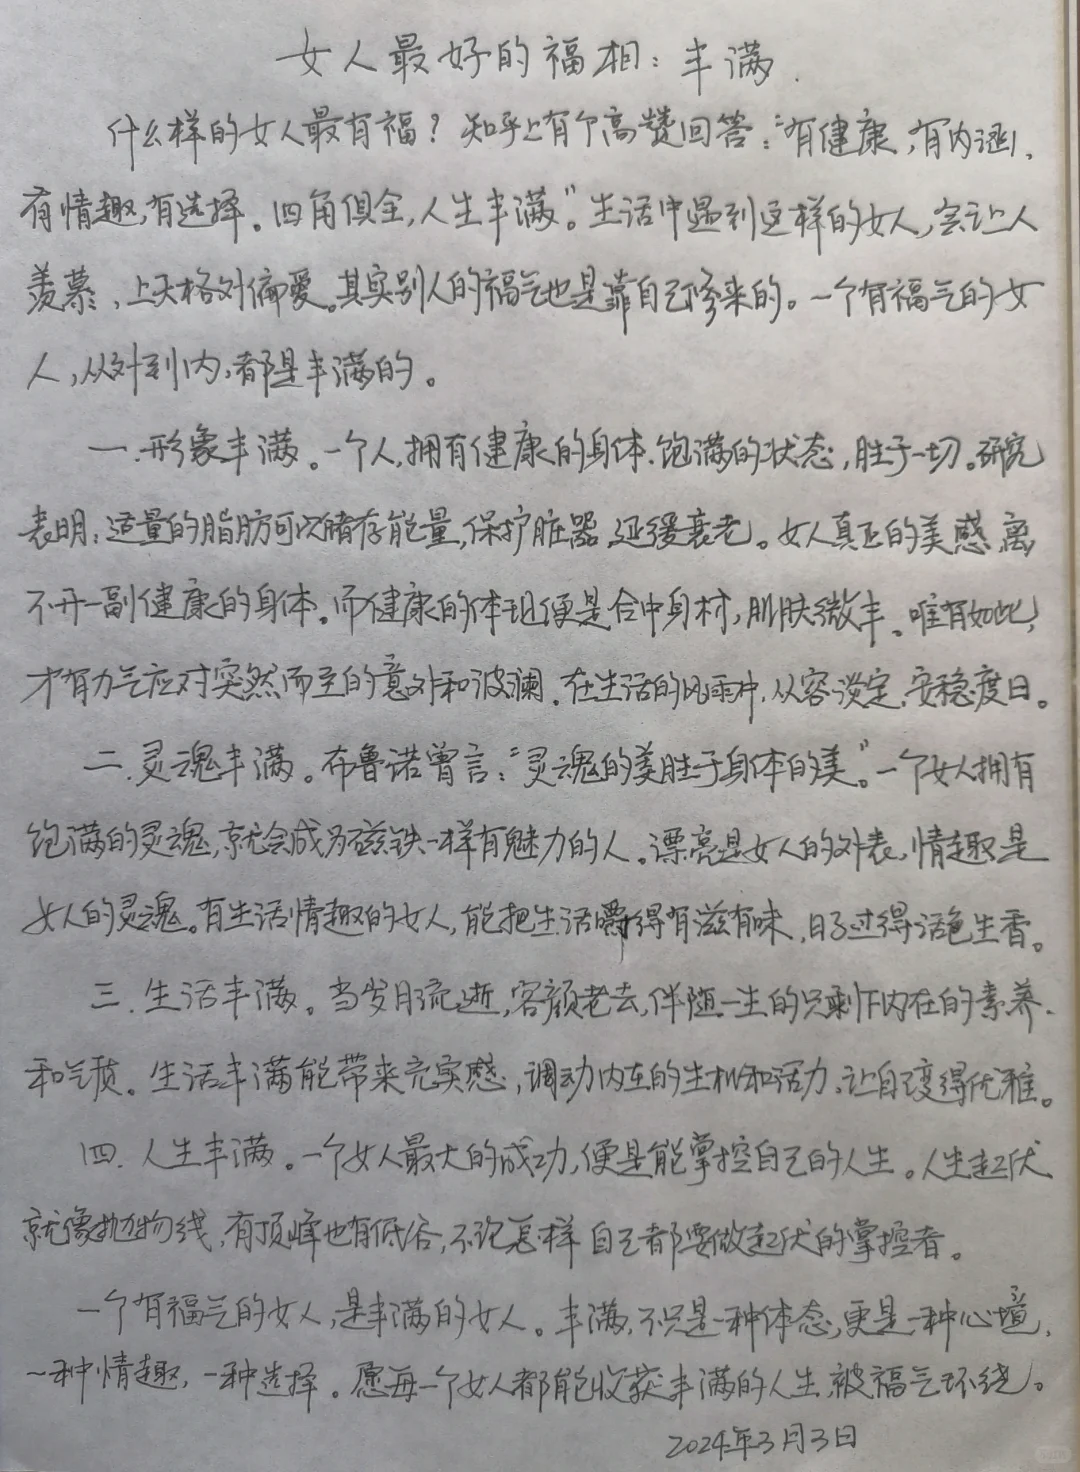 女人最好的福相：丰满.
什么样的女人最有福？知乎上有个高赞回答：“有健康，有内涵，
有情趣，有选择。四角俱全，人生丰满”。生活中遇到这样的女人，会让人
羡慕，上天格外偏爱。其实别人的福气也是靠自己修来的。一个有福气的女
人，从外到内，都是丰满的。
一.形象丰满。一个人，拥有健康的身体.饱满的状态，胜于一切。研究
表明：适量的脂肪可以储存能量，保护脏器，延缓衰老。女人真正的美感，离
不开一副健康的身体。而健康的体现便是合中身材，肌肤微丰。唯有如此，
才有力气应对突然而至的意外和波澜。在生活的风雨中，从容淡定.安稳度日。
二.灵魂丰满。布鲁诺曾言：“灵魂的美胜于身体的美”。一个女人拥有
饱满的灵魂，就会成为磁铁一样有魅力的人。漂亮是女人的外表，情趣是
女人的灵魂。有生活情趣的女人，能把生活嚼得有滋有味，日子过得活色生香。
三.生活丰满。当岁月流逝，容颜老去，伴随一生的只剩下内在的素养
和气质。生活丰满能带来充实感，调动内在的生机和活力，让自己变得优雅。
四.人生丰满。一个女人最大的成功，便是能掌控自己的人生。人生起伏
就像抛物线，有顶峰也有低谷，不论怎样 自己都要做起伏的掌控者。
一个有福气的女人，是丰满的女人。丰满，不只是一种体态，更是一种心境，
一种情趣，一种选择。愿每一个女人都能收获丰满的人生，被福气环绕。
2024年3月3日